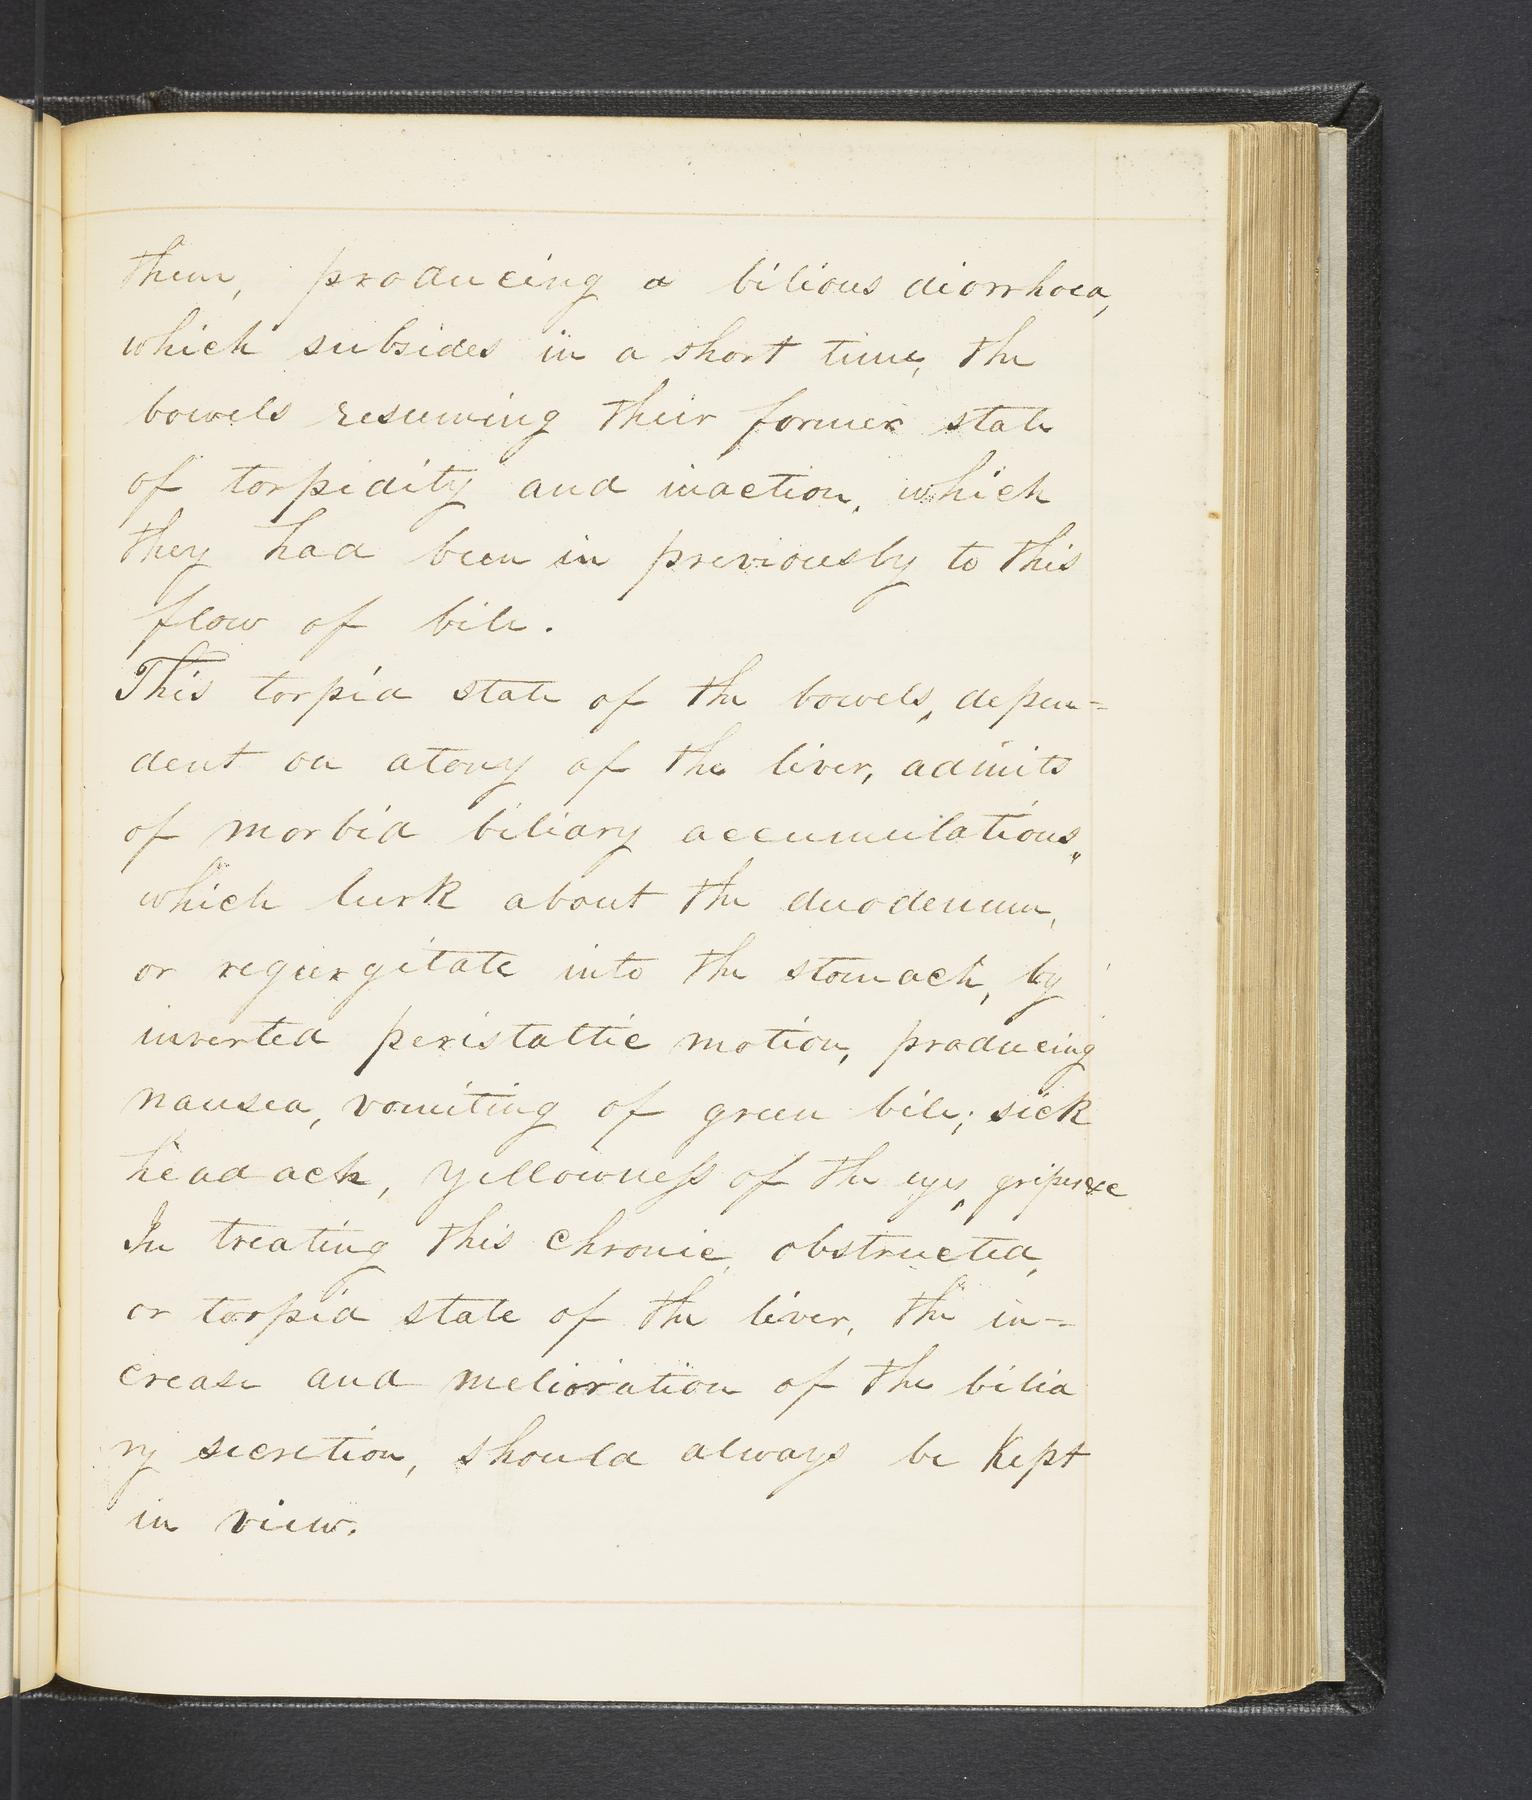 them, producing a bilious diorrhoea,
which subsides in a short time, the
bowels resuming their former state
of torpidity and inaction, which
they had been in previously to this
flow of bile.
This torpid state of the bowels, depen=
dent on atony of the liver, admits
of morbid biliary accumulations,
which lurk about the duodenum,
or regurgitate into the stomach, by
inverted peristaltic motion, producing
nausea, vomiting of green bile; sick
headach, yellowness of the eyes, gripes &c
In treating this chronic, obstructed,
or torpid state of the liver, the in=
crease and melioration of the bilia
ry secretion, should always be kept
in view.